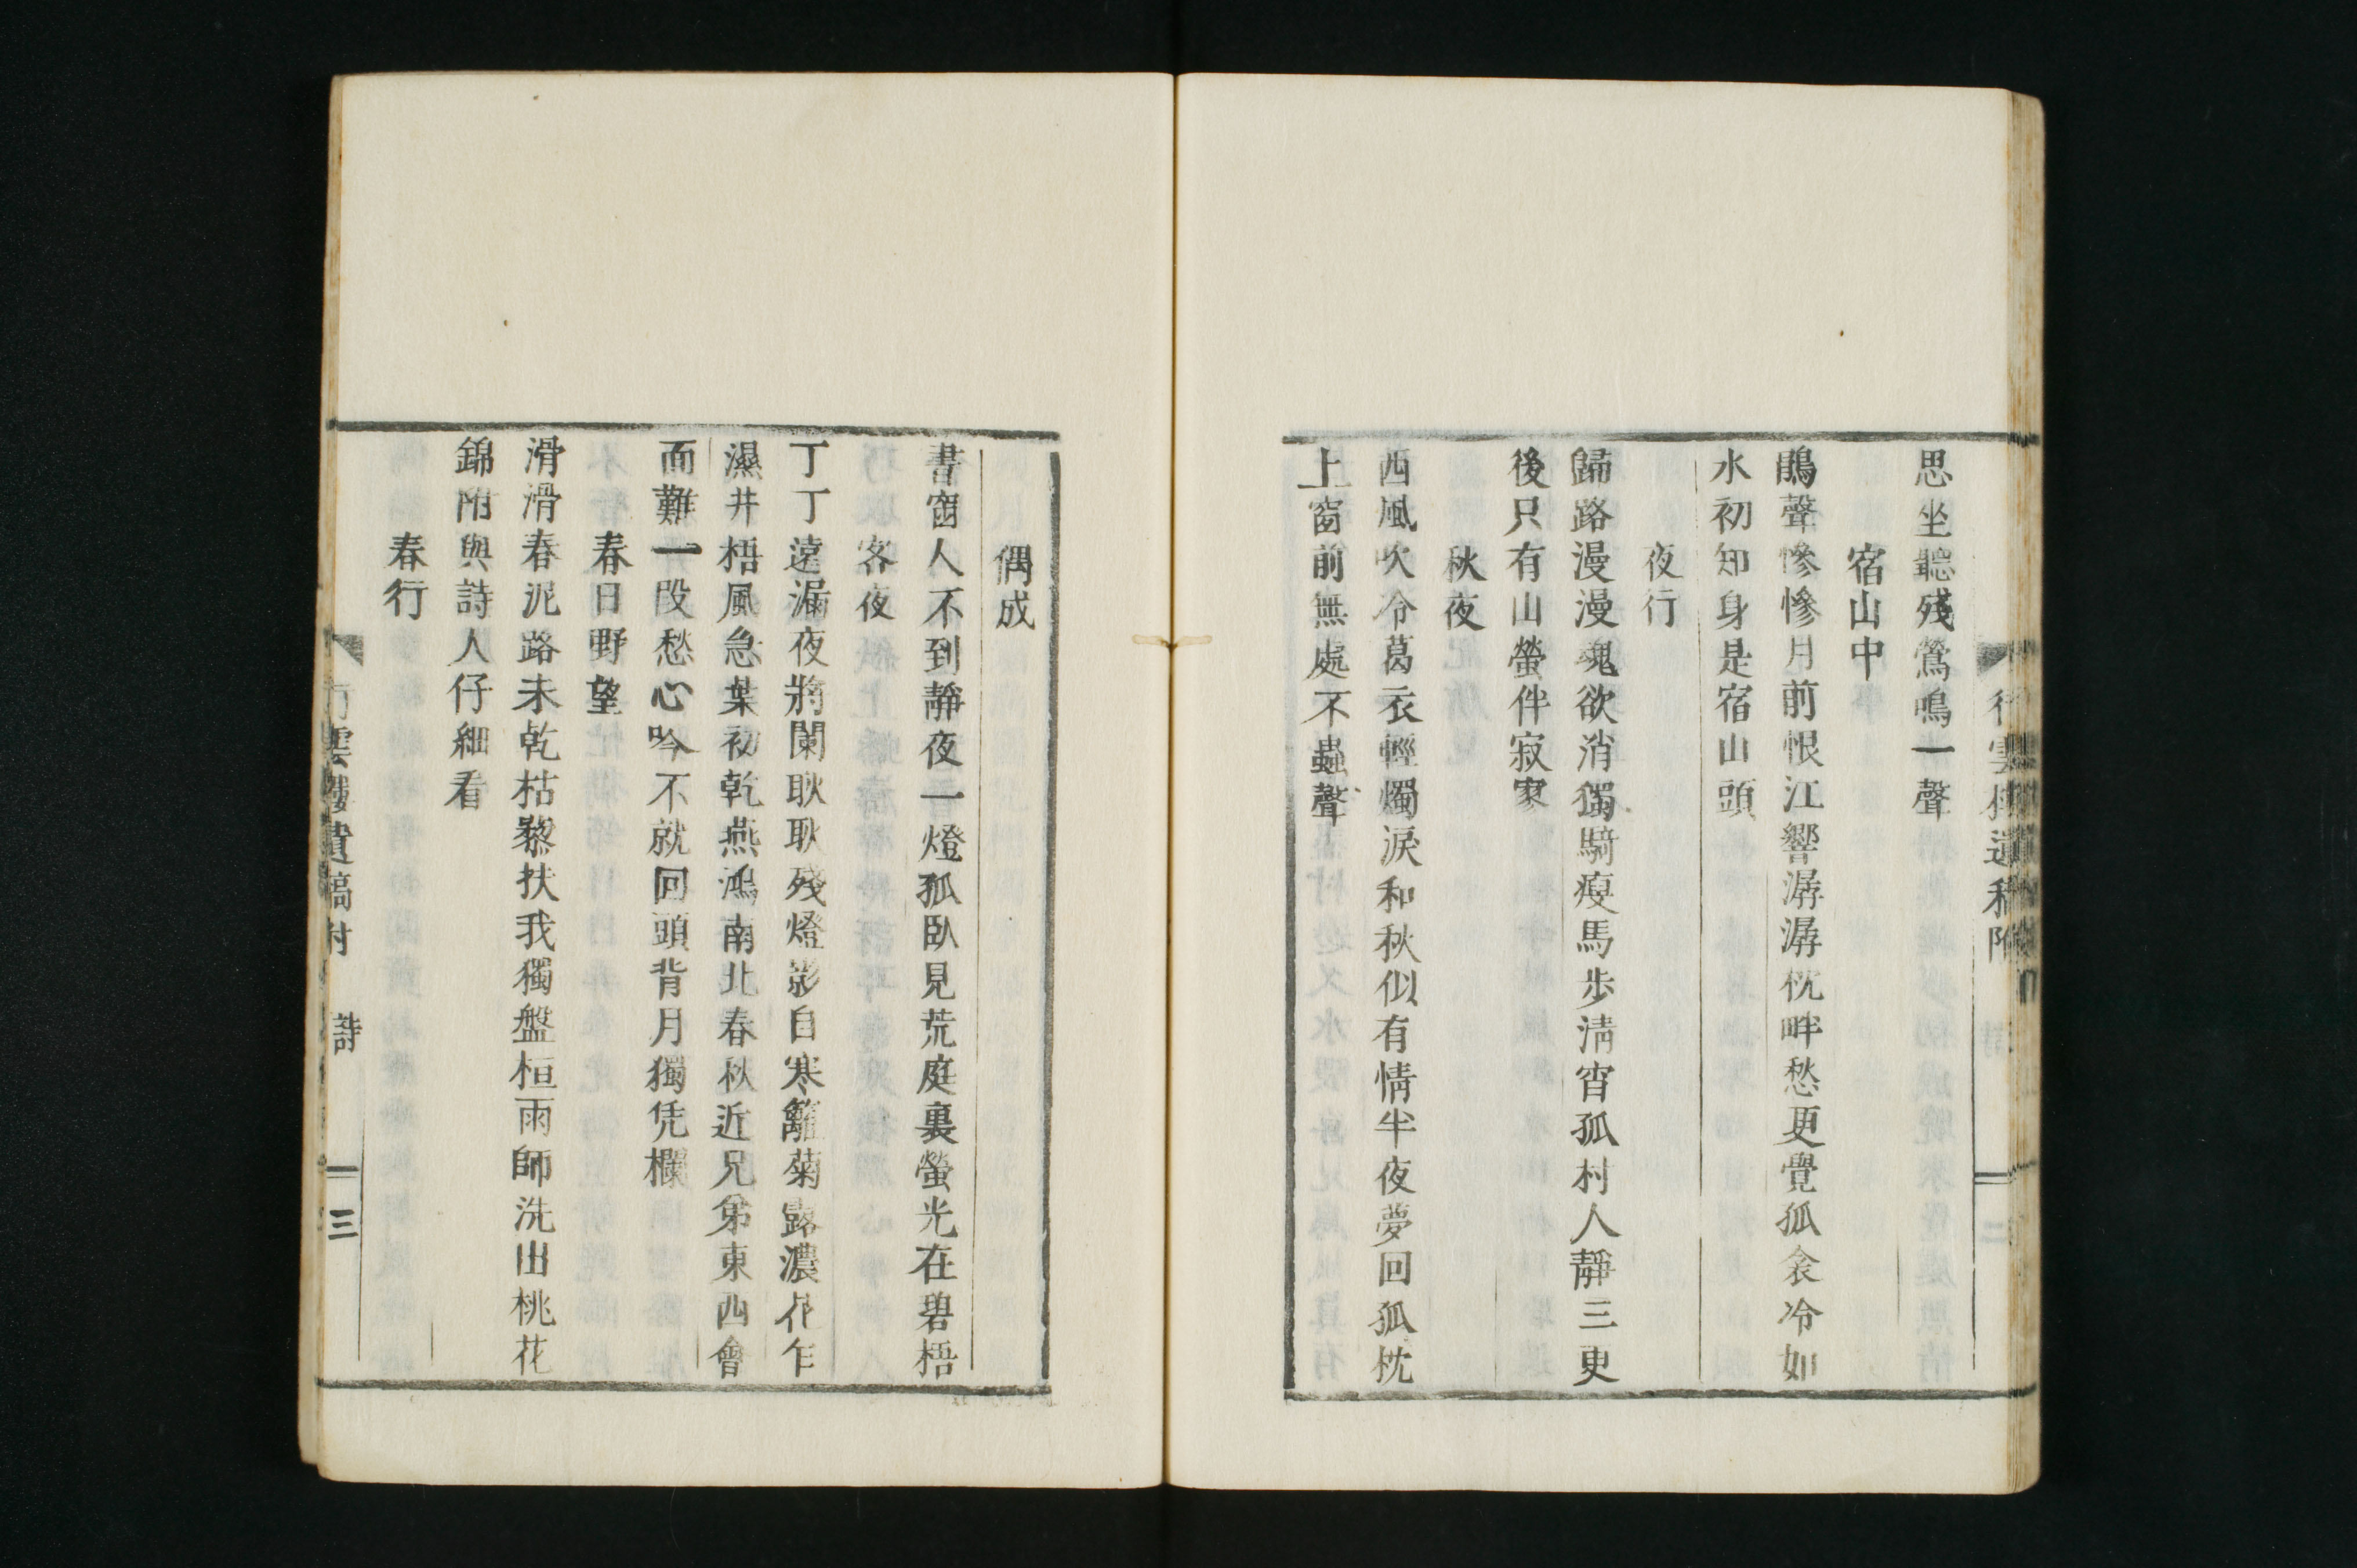 思坐聽殘鶯鳴一聲
宿山中
鵑聲慘慘月前恨江響潺潺枕畔愁更覺孤衾冷如
水初知身是宿山頭
夜行
歸路漫漫魂欲消獨騎瘦馬步淸宵孤村人靜三更
後只有山螢伴寂寥
秋夜
西風吹冷葛衣輕燭淚和秋似有情半夜夢回孤枕
上窗前無處不蟲聲
偶成
書窗人不到靜夜一燈孤臥見荒庭裏螢光在碧梧
客夜
丁丁遠漏夜將闌耿耿殘燈影自寒籬菊露濃花乍
濕井梧風急葉初乾燕鴻南北春秋近兄弟東西會
面難一段愁心吟不就回頭背月獨凭欄
春日野望
滑滑春泥路未乾枯藜扶我獨盤桓雨師洗出桃花
錦附與詩人仔細看
春行
行雲樓遺稿附 詩 三